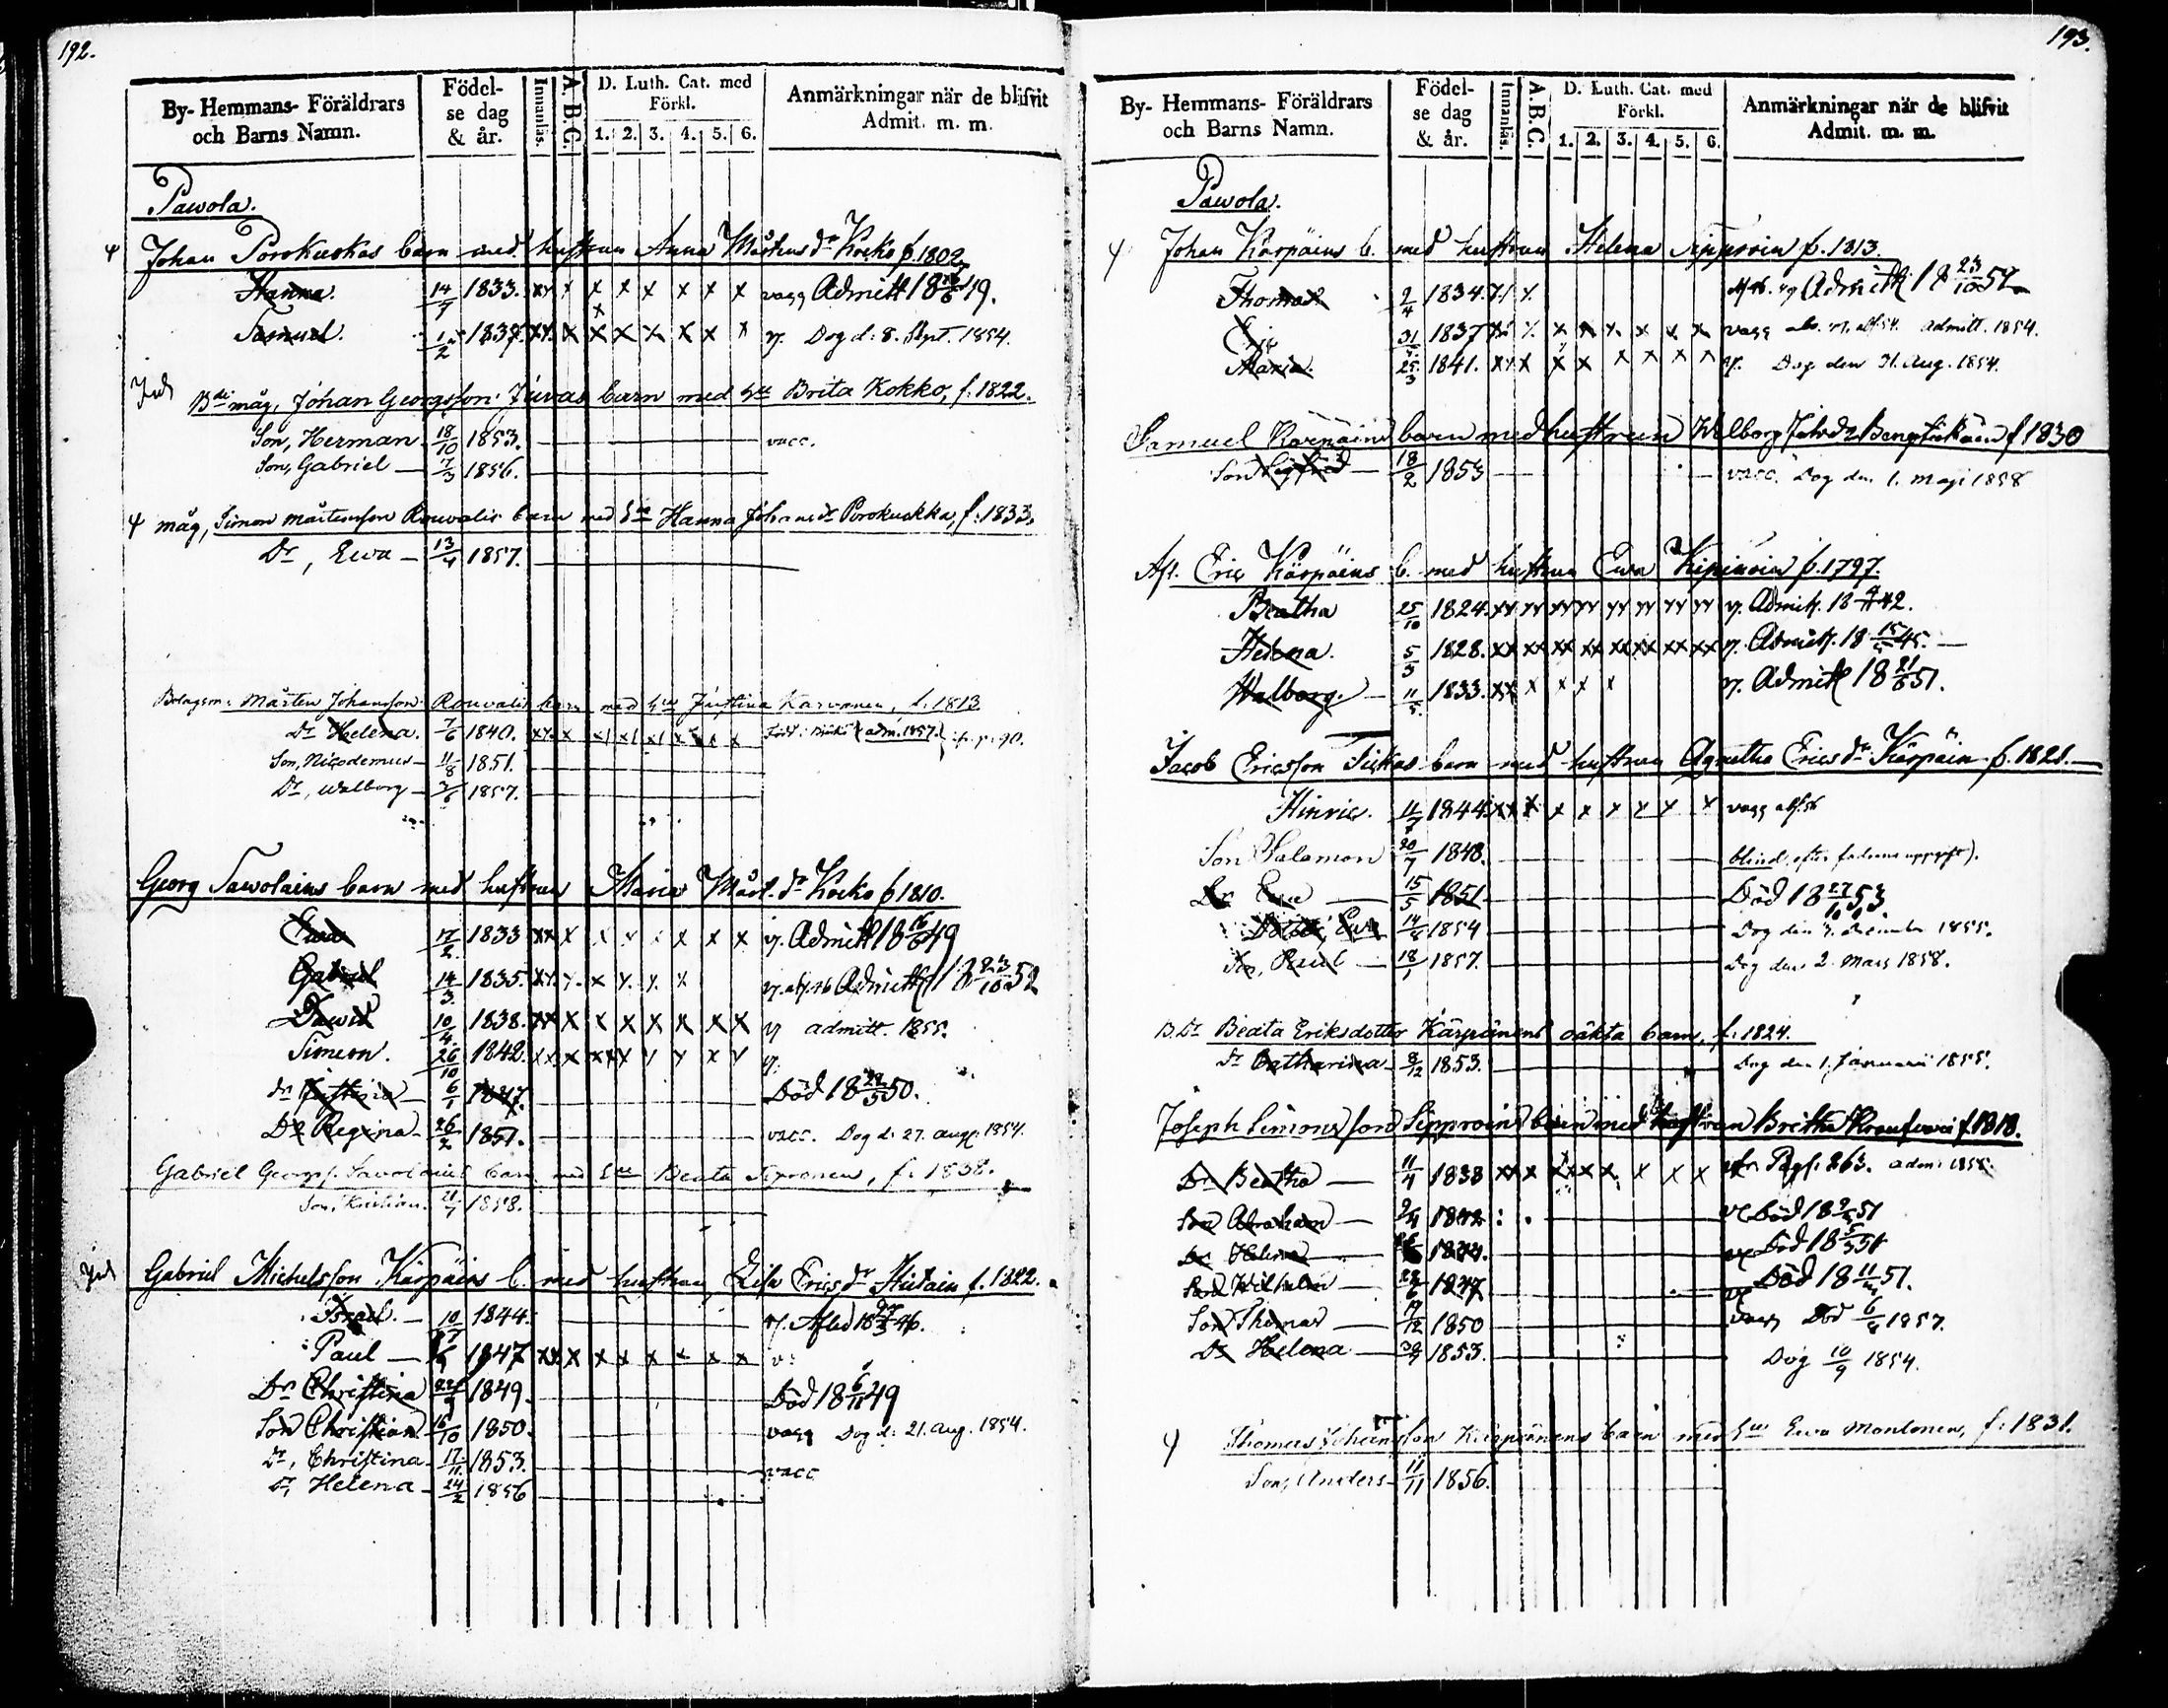 192.
By- Hemmans- Föräldrars och Barns Namn.
Födel-se dag & år.
Innanläs.
A. B. C.
D. Luth. Cat. med Förkl.
1. 2. 3. 4. 5. 6.
Anmärkningar när de blifvit Admit. m. m.
Pawola.
Johan Porokuokas barn med hustrun Anna Mårtens dr Kocko f. 1802
Hanna. 14/7 1833. x x x x x x x vacc Admitt 18 16/6 49.
Samuel. 1837. x x x x x x x v. Dog d: 8. Sept. 1854.
måg, Johan Georgsson Juvas barn med hu Brita Kokko, f. 1822.
Son, Herman 18/10 1853. vacc.
Son, Gabriel 7/3 1856.
måg, Simon Mårtensson Rouvalis barn med hu Hanna Johans dr Porokuokka, f. 1833.
Dr, Ewa 13/4 1857.
Bolagsm: Mårten Johansson Rouvalis barn med hu Justina Karvonen, f. 1813
Dr Helena. 7/6 1840. adm. 1857. p. 90.
Son, Nicodemus 11/8 1851.
Dr, Walborg 1857.
Georg Sawolains barn med hustrun Maria Mårt. dr Kocko f 1810.
Ewa 17/2 1833 v. Admitt 18 16/6 49
Gabriel 14/3 1835. v. Admitt 18 23/10 52
Dawid 10/4 1838. v admitt. 1855.
Simeon. 26/10 1842. v.
dr Justina 6/1 1847. Död 18 22/5 50.
Dr Regina 26/2 1851. vacc. Dog d: 27. aug. 1854.
Gabriel Georgs. Savolainens barn med hu Beata Sipronen, f: 1838.
Son, Kristian. 21/7 1858.
Gabriel Michelsson Kärpäins b. med hustrun Lisa Erics dr Hutain f. 1822.
Israel. 10 1844. v. Afled 18 27/3 46.
Paul 1847 x x x x x x x x v:
Dr Christina 1849. Död 18 6/11 49
Son Christian 16/10 1850. vacc Dog d: 21. Aug. 1854.
Dr, Christina 17/11 1853. vacc
Dr Helena 24/2 1856
193.
By- Hemmans- Föräldrars och Barns Namn.
Födel-se dag & år.
Innanläs.
A. B. C.
D. Luth. Cat. med Förkl.
1. 2. 3. 4. 5. 6.
Anmärkningar när de blifvit Admit. m. m.
Pawola.
Johan Kärpäins b. med hustrun Helena Sipproin f. 1813.
Thomas 2/4 1834. Admitt 18 23/10 52
Eric 31 1837 vacc admitt. 1854.
Maria. 25/3 1841. v. Dog den 31. Aug. 1854.
Samuel Karpäins barn med hustrun Walborg f 1830
Son Sigfrid 18/2 1853 vacc. Dog den 1. Maji 1858
Afl. Eric Kärpäins b. med hustrun Ewa Kipinoin f. 1797.
Beatha 25/10 1824. v. Admitt. 18 42.
Helena. 5/3 1828. v. Admitt. 18 15 45.
Walborg. 11/5 1833. v. Admitt 18 21/6 51.
Jacob Ericsson Tickas barn med hustrun Agnetha Erics dr Kärpäin f. 1821.
Hinric. 11/7 1844. vacc
Son Salomon 20/7 1848. blind (efter fadrens uppgift).
Dr Ewa 15/5 1851 Död 18 27/10 53.
Dotter, Ewa 14/8 1854 Dog den 7. December 1855.
Son, Paul 18/1 1857. Dog den 2. Mars 1858.
B. Dr Beata Eriksdotter Kärpänens oäkta barn, f. 1824.
dr Catharina 9/12 1853. Dog den 1. Januarii 1855.
Joseph Simonsson Sipproins barn med hustrun Breitha f. 1818.
Dr Beatha 11/4 1838 Pag. 263. adm: 1855.
Son Abraham 1842 Död 18 51
Dr Helena 1844. Död 18 5/5 51
Son Wilhelm 22/6 1847 Död 18 11 51.
Son Thomas 19/12 1850 vacc Död 6/8 1857.
Dr Helena 1853. Dog 10/9 1854.
Thomas Johansson Kärpänens barn med hu Ewa Montonen, f: 1831.
Son, Anders 11/11 1856.